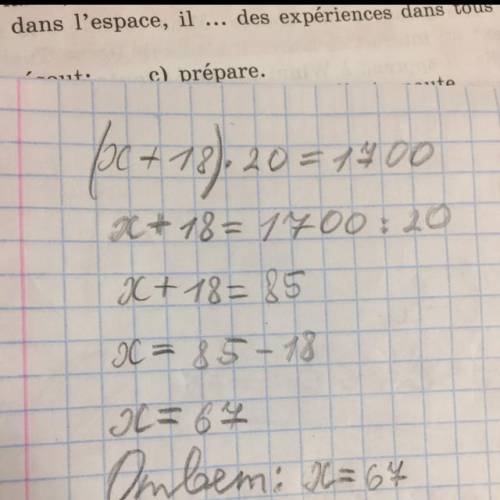 dans l'espace, il ... des expériences dans tous
c) prépare.
(x + 18) · 20 = 1700
x + 18 = 1700 : 20
x + 18 = 85
x = 85 - 18
x = 67
Ответ: x = 67